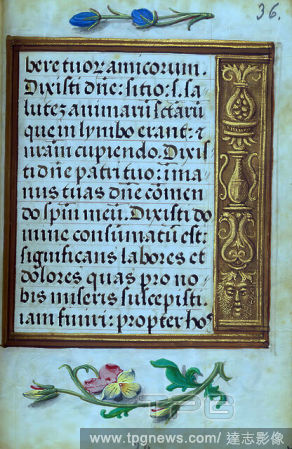 36.
bere tuoꝝ amicorum.
Dixisti dñe: sitio: s. sa
lutez animarũ sctarũ
que in lymbo erant: ⁊
nr̃am cupiendo. Dixis
ti dñe patri tuo: i ma
nus tuas dñe cõmen
do sp̃m meũ. Dixisti do
mine consumatũ est:
significans labores et
dolores quas pro no
bis miseris suscepisti
iam finiri: propter hos
TPG
www.tpgnews.com / 達志影像